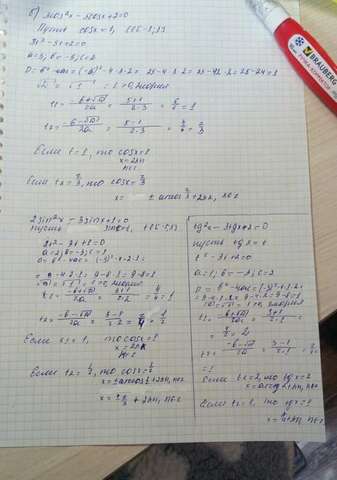 б) 3cos²x - 5cosx + 2 = 0
Пусть cosx = t, t∈[-1;1]
3t² - 5t + 2 = 0
a=3, b=-5, c=2
D = b² - 4ac = (-5)² - 4·3·2 = 25 - 4·3·2 = 25-12·2 = 25-24 = 1
t1 = (-b+√D)/2a = (5+1)/(2·3) = 6/6 = 1
t2 = (-b-√D)/2a = (5-1)/(2·3) = 4/6 = 2/3
Если t=1, то cosx=1
x=2πn
n∈z
Если t2=2/3, то cosx=2/3
x = ± arccos 2/3 + 2πn, n∈z
2sin²x - 3sinx + 1 = 0
Пусть sinx=t, t∈[-1;1]
2t² - 3t + 1 = 0
a=2; b=-3; c=1
D = b² - 4ac = (-3)² - 4·2·1 =
= 9-4·2·1 = 9-8·1 = 9-8 = 1
t1 = (-b+√D)/2a = (3+1)/(2·2) = 4/4 = 1
t2 = (-b-√D)/2a = (3-1)/(2·2) = 2/4 = 1/2
Если t=1, то cosx=1
x=2πn
n∈z
Если t2=1/2, то cosx=1/2
x=±arccos 1/2 + 2πn, n∈z
x = ±π/3 + 2πn, n∈z
tg²x - 3tgx + 2 = 0
Пусть tgx = t
t² - 3t + 2 = 0
a=1; b=-3; c=2
D = b² - 4ac = (-3)² - 4·1·2 =
= 9-4·1·2 = 9-4·2 = 9-8 = 1
t1 = (-b+√D)/2a = (3+1)/(2·1) =
= 4/2 = 2
t2 = (-b-√D)/2a = (3-1)/(2·1) = 2/2
= 1
Если t=2, то tgx=2
x=arctg2+πn, n∈z
Если t=1, то tgx=1
x=π/4+πn, n∈z
BRAUBERG